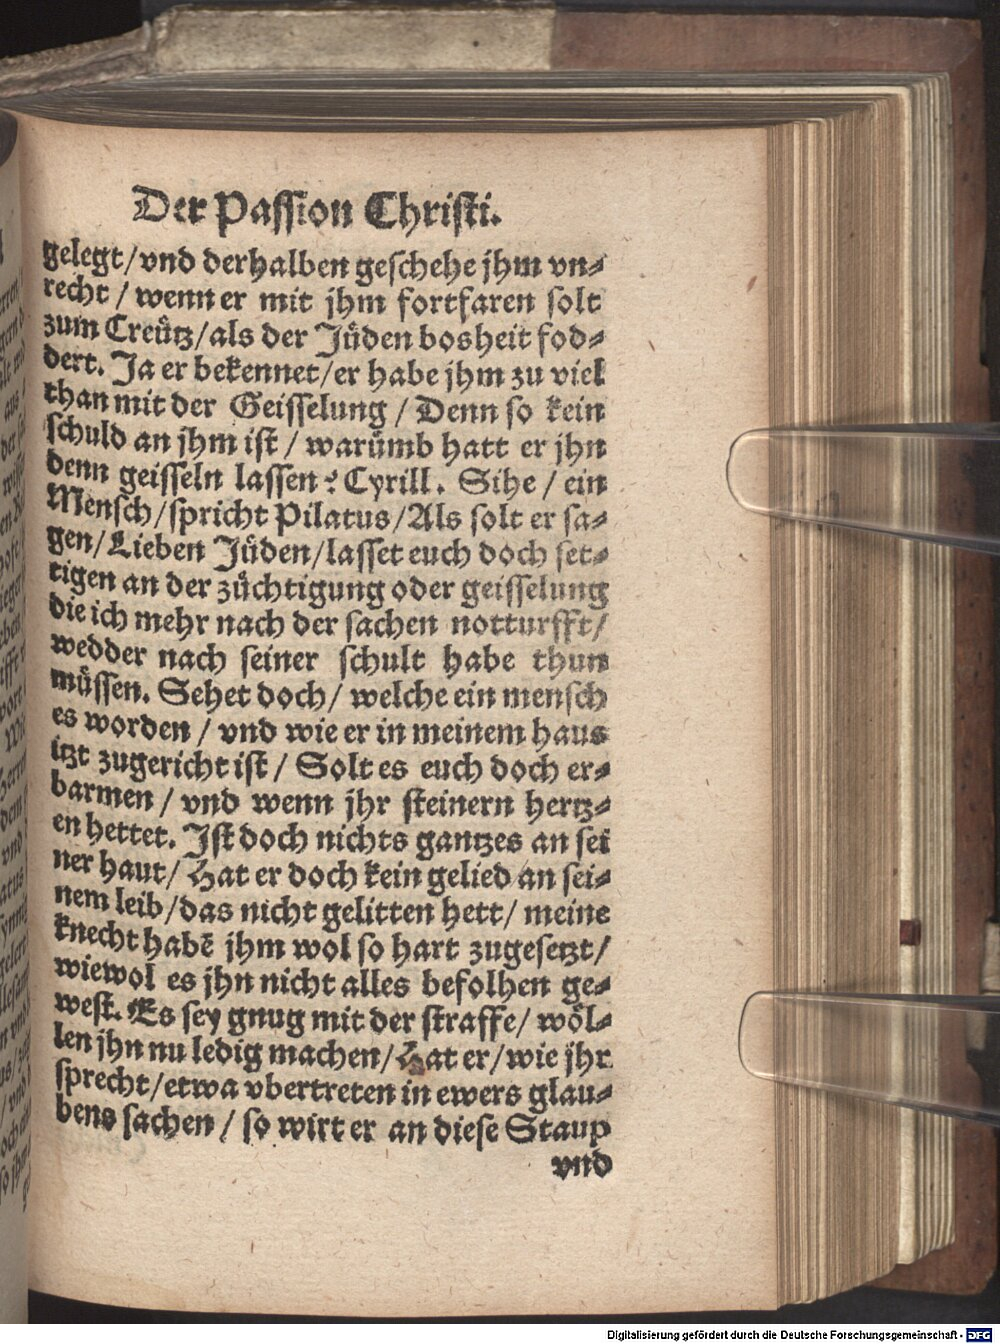 Der Passion Christi.
gelegt/vnd derhalben geschehe jhm vn⸗
recht / wenn er mit jhm fortfaren solt
zum Creütz/als der Jüden bosheit fod⸗
dert. Ja er bekennet/er habe jhm zu viel
than mit der Geisselung / Denn so kein
schuld an jhm ist / warümb hatt er jhn
denn geisseln lassen? Cyrill. Sihe / ein
Mensch/spricht Pilatus/Als solt er sa⸗
gen/Lieben Jüden/lasset euch doch set⸗
tigen an der züchtigung oder geisselung
die ich mehr nach der sachen notturfft/
wedder nach seiner schult habe thun
müssen. Sehet doch/ welche ein mensch
es worden / vnd wie er in meinem haus
itzt zugericht ist / Solt es euch doch er⸗
barmen / vnd wenn jhr steinern hertz⸗
en hettet. Ist doch nichts gantzes an sei
ner haut/ Hat er doch kein gelied an sei⸗
nem leib/das nicht gelitten hett/ meine
knecht habē jhm wol so hart zugesetzt/
wiewol es jhn nicht alles befolhen ge⸗
west. Es sey gnug mit der straffe/ wöl⸗
len jhn nu ledig machen/Hat er/wie jhr
sprecht/etwa vbertreten in ewers glau⸗
bens sachen / so wirt er an diese Staup
vnd
Digitalisierung gefördert durch die Deutsche Forschungsgemeinschaft - DFG